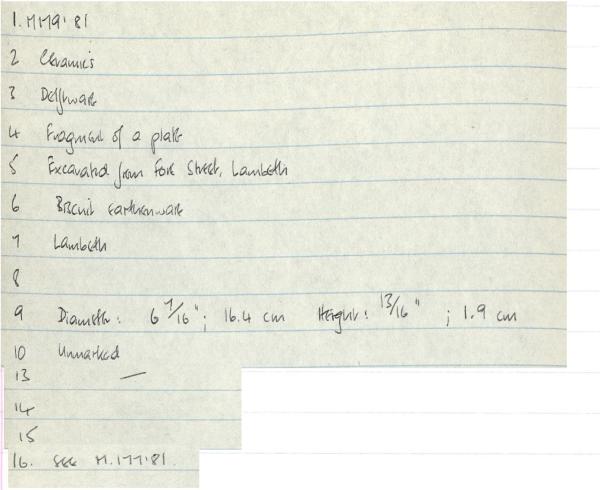 1. MM9.81
2 Ceramics
3 Delftware
4 Fragment of a plate
5 Excavated from Fore Street, Lambeth
6 Biscuit earthenware
7 Lambeth
8
9 Diameter: 6 7/16"; 16.4 cm Height: 13/16" ; 1.9 cm
10 Unmarked
13 —
14
15
16. SEE M.177.81.